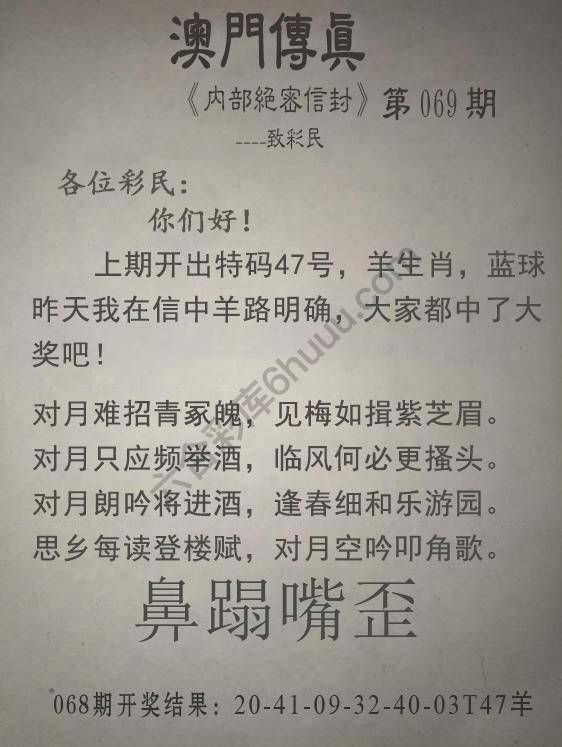 澳門傳眞
《内部絕密信封》第069期
----致彩民
各位彩民：
你们好！
上期开出特码47号，羊生肖，蓝球
昨天我在信中羊路明确，大家都中了大
奖吧！
六合彩库6huuu.com
对月难招青冢魄，见梅如揖紫芝眉。
对月只应频举酒，临风何必更搔头。
对月朗吟将进酒，逢春细和乐游园。
思乡每读登楼赋，对月空吟叩角歌。
鼻蹋嘴歪
068期开奖结果：20-41-09-32-40-03T47羊